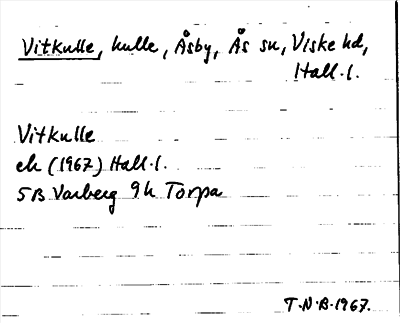 Vitkulle, kulle, Åsby, Ås sn, Viske hd,
Hall. l.
Vitkulle
ek (1967) Hall. l.
5B Varberg 9h Torpa
T.N.B. 1967.